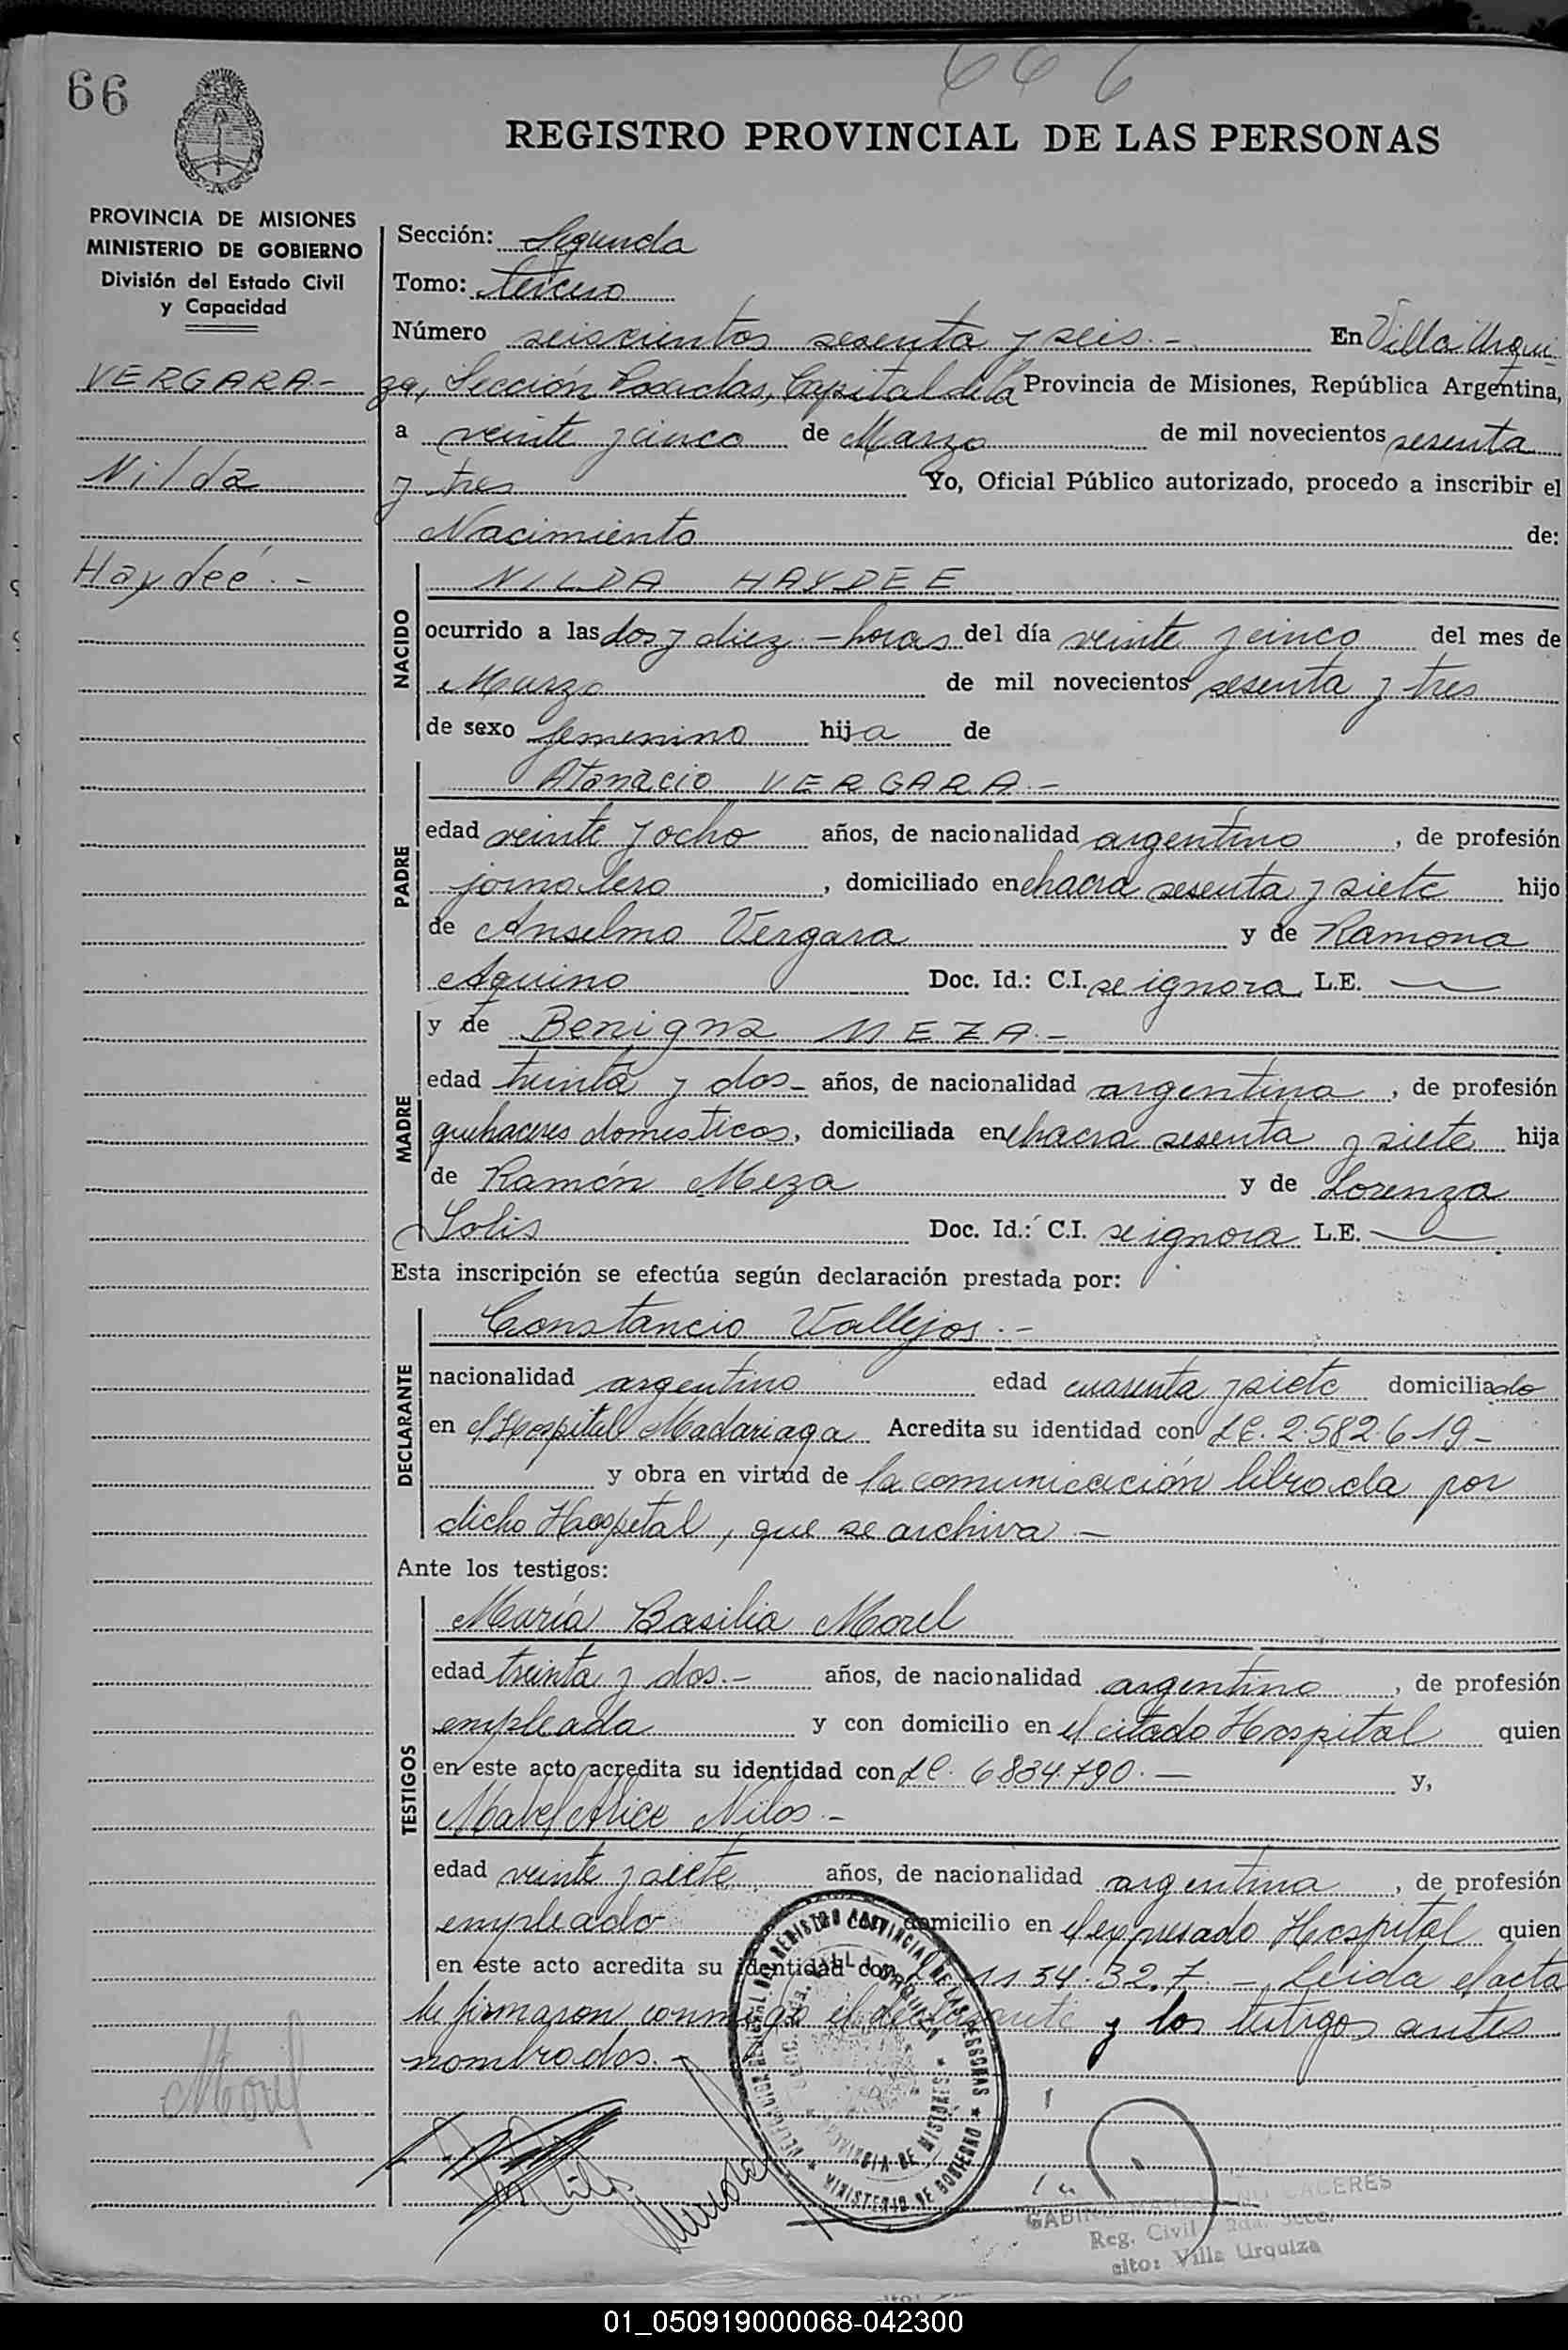 66
66 6
REGISTRO PROVINCIAL DE LAS PERSONAS
PROVINCIA DE MISIONES
MINISTERIO DE GOBIERNO
División del Estado Civil
y Capacidad
VERGARA.-
Nilda
Haydeé.-
Sección: Segunda
Tomo: tercero
Número seiscientos sesenta y seis.- En Villa Urqui-
za, Sección Posadas, Capital de la Provincia de Misiones, República Argentina,
a veinte y cinco de Marzo de mil novecientos sesenta
y tres Yo, Oficial Público autorizado, procedo a inscribir el
Nacimiento de:
NACIDO
NILDA HAYDEE
ocurrido a las dos y diez.- horas del día veinte y cinco del mes de
Marzo de mil novecientos sesenta y tres
de sexo femenino hija de
PADRE
Atanacio VERGARA.-
edad veinte y ocho años, de nacionalidad argentino, de profesión
jornalero, domiciliado en chacra sesenta y siete hijo
de Anselmo Vergara y de Ramona
Aquino Doc. Id.: C.I. se ignora L.E. —
MADRE
y de Benigna MEZA.-
edad treinta y dos- años, de nacionalidad argentina, de profesión
quehaceres domesticos, domiciliada en chacra sesenta y siete hija
de Ramón Meza y de Lorenza
Solis Doc. Id.: C.I. se ignora L.E. —
Esta inscripción se efectúa según declaración prestada por:
DECLARANTE
Constancio Vallejos.-
nacionalidad argentino edad cuarenta y siete domiciliado
en el Hospital Madariaga Acredita su identidad con LE. 2.582.619-
y obra en virtud de la comunicación librada por
dicho Hospital, que se archiva.-
Ante los testigos:
TESTIGOS
María Basilia Morel
edad treinta y dos.- años, de nacionalidad argentina, de profesión
empleada y con domicilio en el citado Hospital quien
en este acto acredita su identidad con LC. 6834.790.— y,
Mabel Alice Nilos.-
edad veinte y siete años, de nacionalidad argentina, de profesión
empleado y con domicilio en el expresado Hospital quien
en este acto acredita su identidad con 1154.327.- Leida el acta
la firmaron conmigo el declarante y los testigos antes
nombrados.-
Morel
DELEGACION REGIONAL DEL REGISTRO PROVINCIAL DE LAS PERSONAS
MINISTERIO DE GOBIERNO
VILLA URQUIZA
PROVINCIA DE MISIONES
CACERES
Reg. Civil 2da. Secc.
cito: Villa Urquiza
01_050919000068-042300